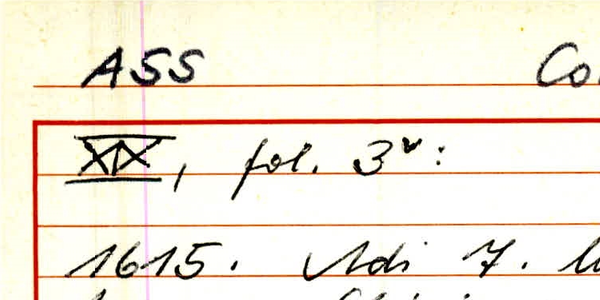 ASS Co
XIX, fol. 3v:
1615. Adi 7.